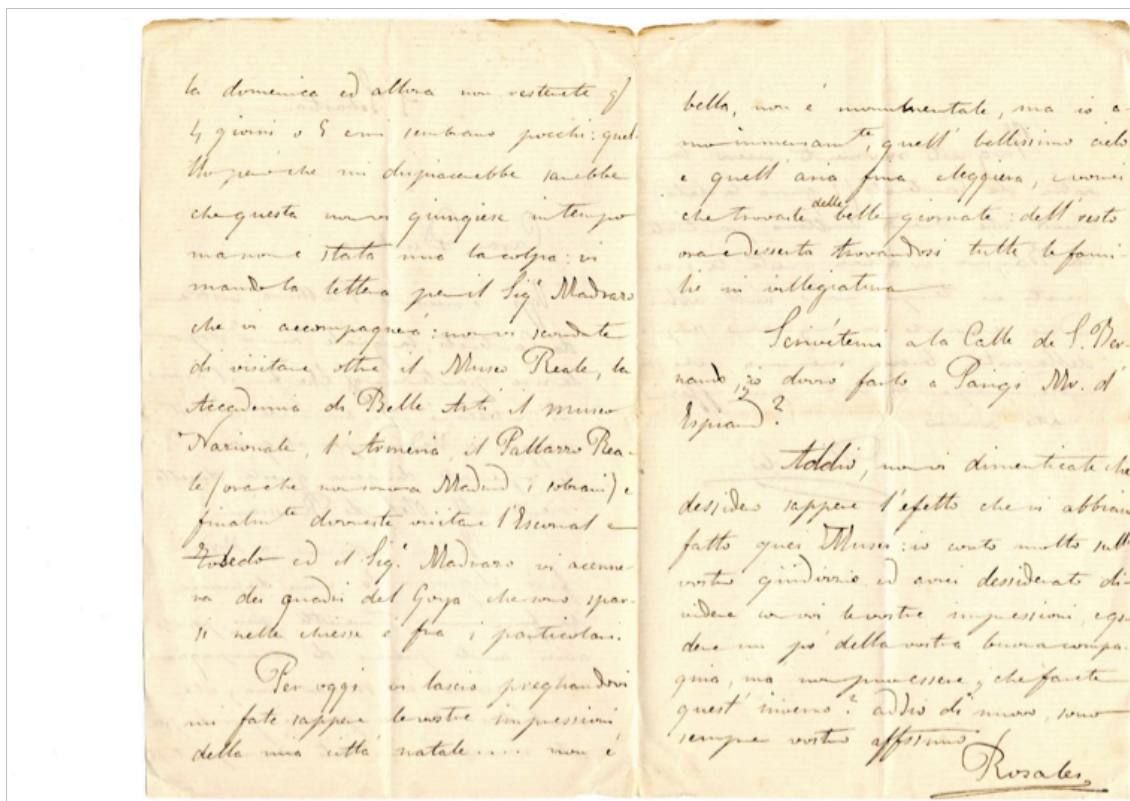 la domenica ed allora non resterete q/
4 giorni o 5 e mi sembrano pocchi: quel-
llo però che mi dispiacerebbe sarebbe
che questa non vi giungiese in tempo
ma non è stata mia la colpa: vi
mando la lettera per il Sigr Madrazo
che vi accompagnerá: non vi scordate
di visitare oltre il Museo Reale, la
Accademia di Belle Arti il museo
Nazionale, l'Armeria, il Pallazzo Rea-
le (ora che non sono a Madrid i sobrani) e
finalmte dovreste visitare l'Escorial e
Toledo ed il Sigr Madrazo vi accenne-
ra dei quadri del Goya che sono spar-
si nelle chiesse e fra i particolari.
Per oggi vi lascio preghandovi
mi fate sappere le vostre impressioni
della mia città natale.... non é
bella, non é monumentale, ma io a-
mo inmensamte, quell' bellissimo cielo
e quell' aria fina e leggiera, vorrei
che trovaste delle belle giornate: dell' resto
ora e desserta trovandosi tutte le fami-
lie in villegiatura
Scrivétemi a la Calle de S. Ber-
nardo, io dovró farlo a Parigi Mr. d'
?
Addio, non vi dimenticate che
dessidero sappere l'efetto che vi abbiano
fatto quei Musei: io conto molto sulla
vostro giudizzio ed avrei dessiderato di-
videre con voi le vostre impressioni, e go-
dere un pó della vostra buona compa-
gnia, ma non puo essere, che farete
quest' inverno? addio di nuovo, sono
sempre vostro affssimo
Rosales